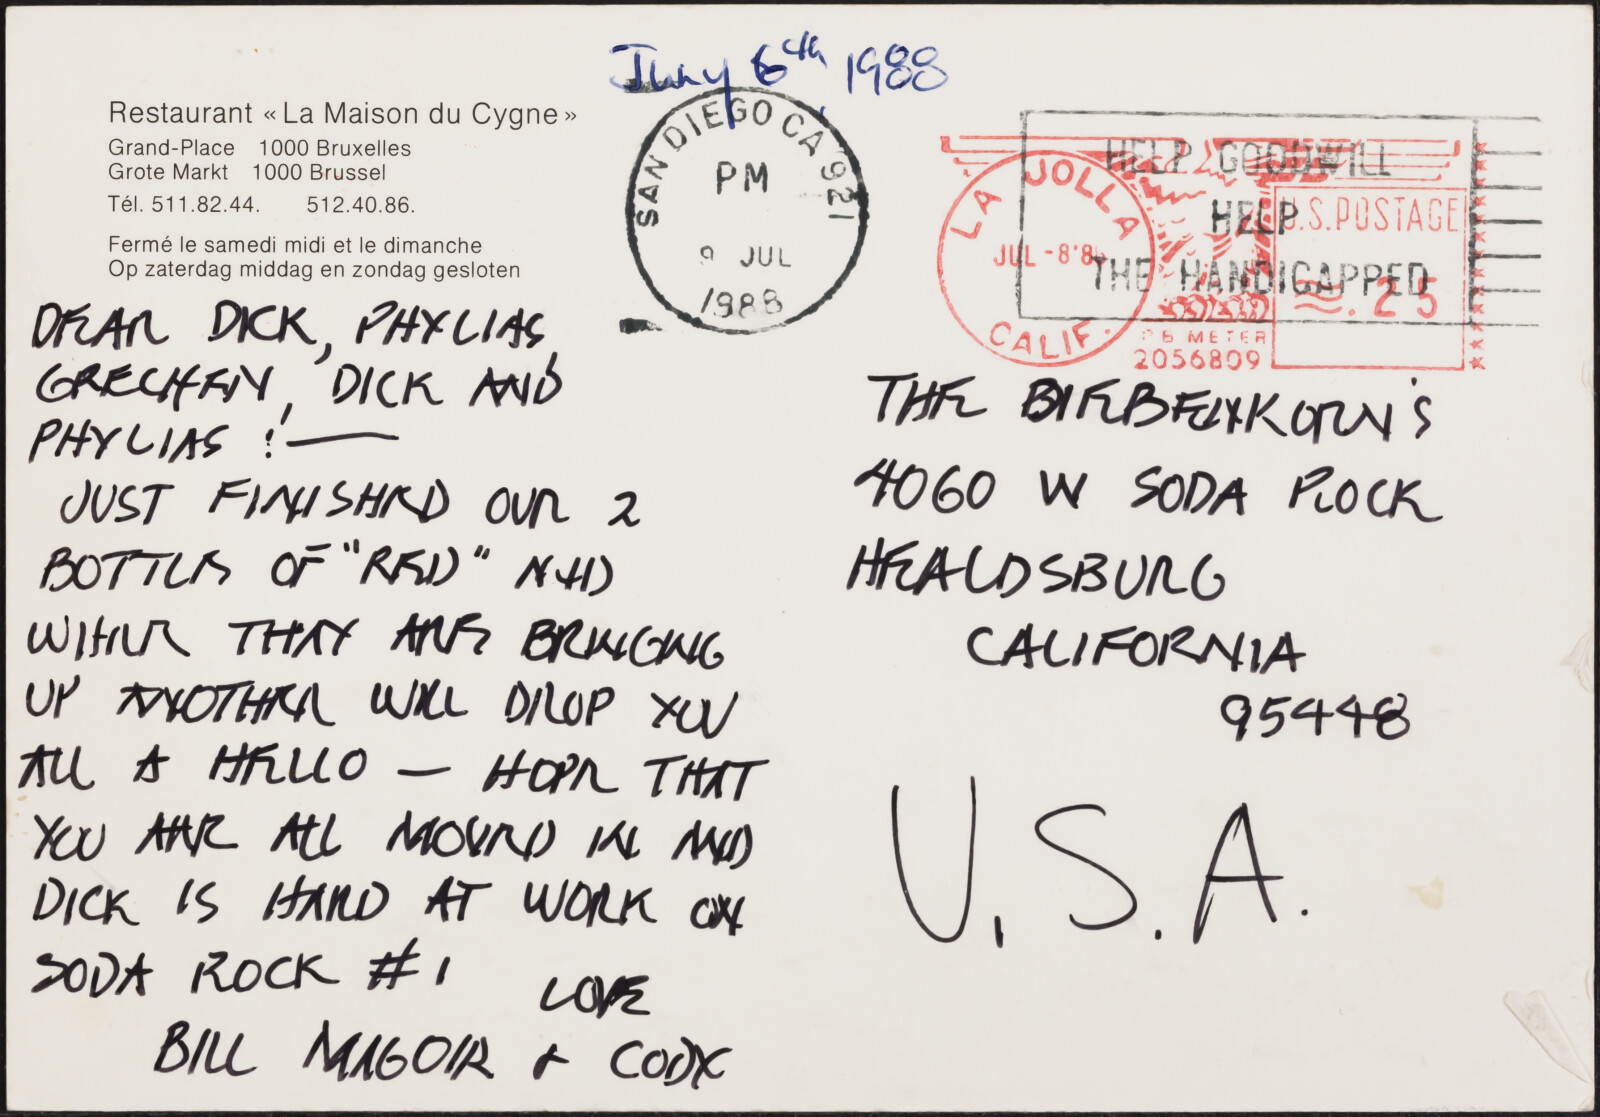 July 6th 1988
Restaurant «La Maison du Cygne»
Grand-Place 1000 Bruxelles
Grote Markt 1000 Brussel
Tél. 511.82.44. 512.40.86.
Fermé le samedi midi et le dimanche
Op zaterdag middag en zondag gesloten
SAN DIEGO CA 921
PM
9 JUL
1988
LA JOLLA
JUL -8'8
CALIF.
HELP GOODWILL
HELP
THE HANDICAPPED
U.S. POSTAGE
.25
PB METER
2056809
DEAR DICK, PHYLIAS,
GRECHEN, DICK AND
PHYLIAS!—
JUST FINISHED OUR 2
BOTTLES OF "RED" AND
WHILE THEY ARE BRINGING
UP ANOTHER WILL DROP YOU
ALL A HELLO — HOPE THAT
YOU ARE ALL MOVED IN AND
DICK IS HARD AT WORK ON
SODA ROCK #1
LOVE
BILL MAGOIR + CODY
THE DIEBENKORN'S
4060 W SODA ROCK
HEALDSBURG
CALIFORNIA
95448
U.S.A.